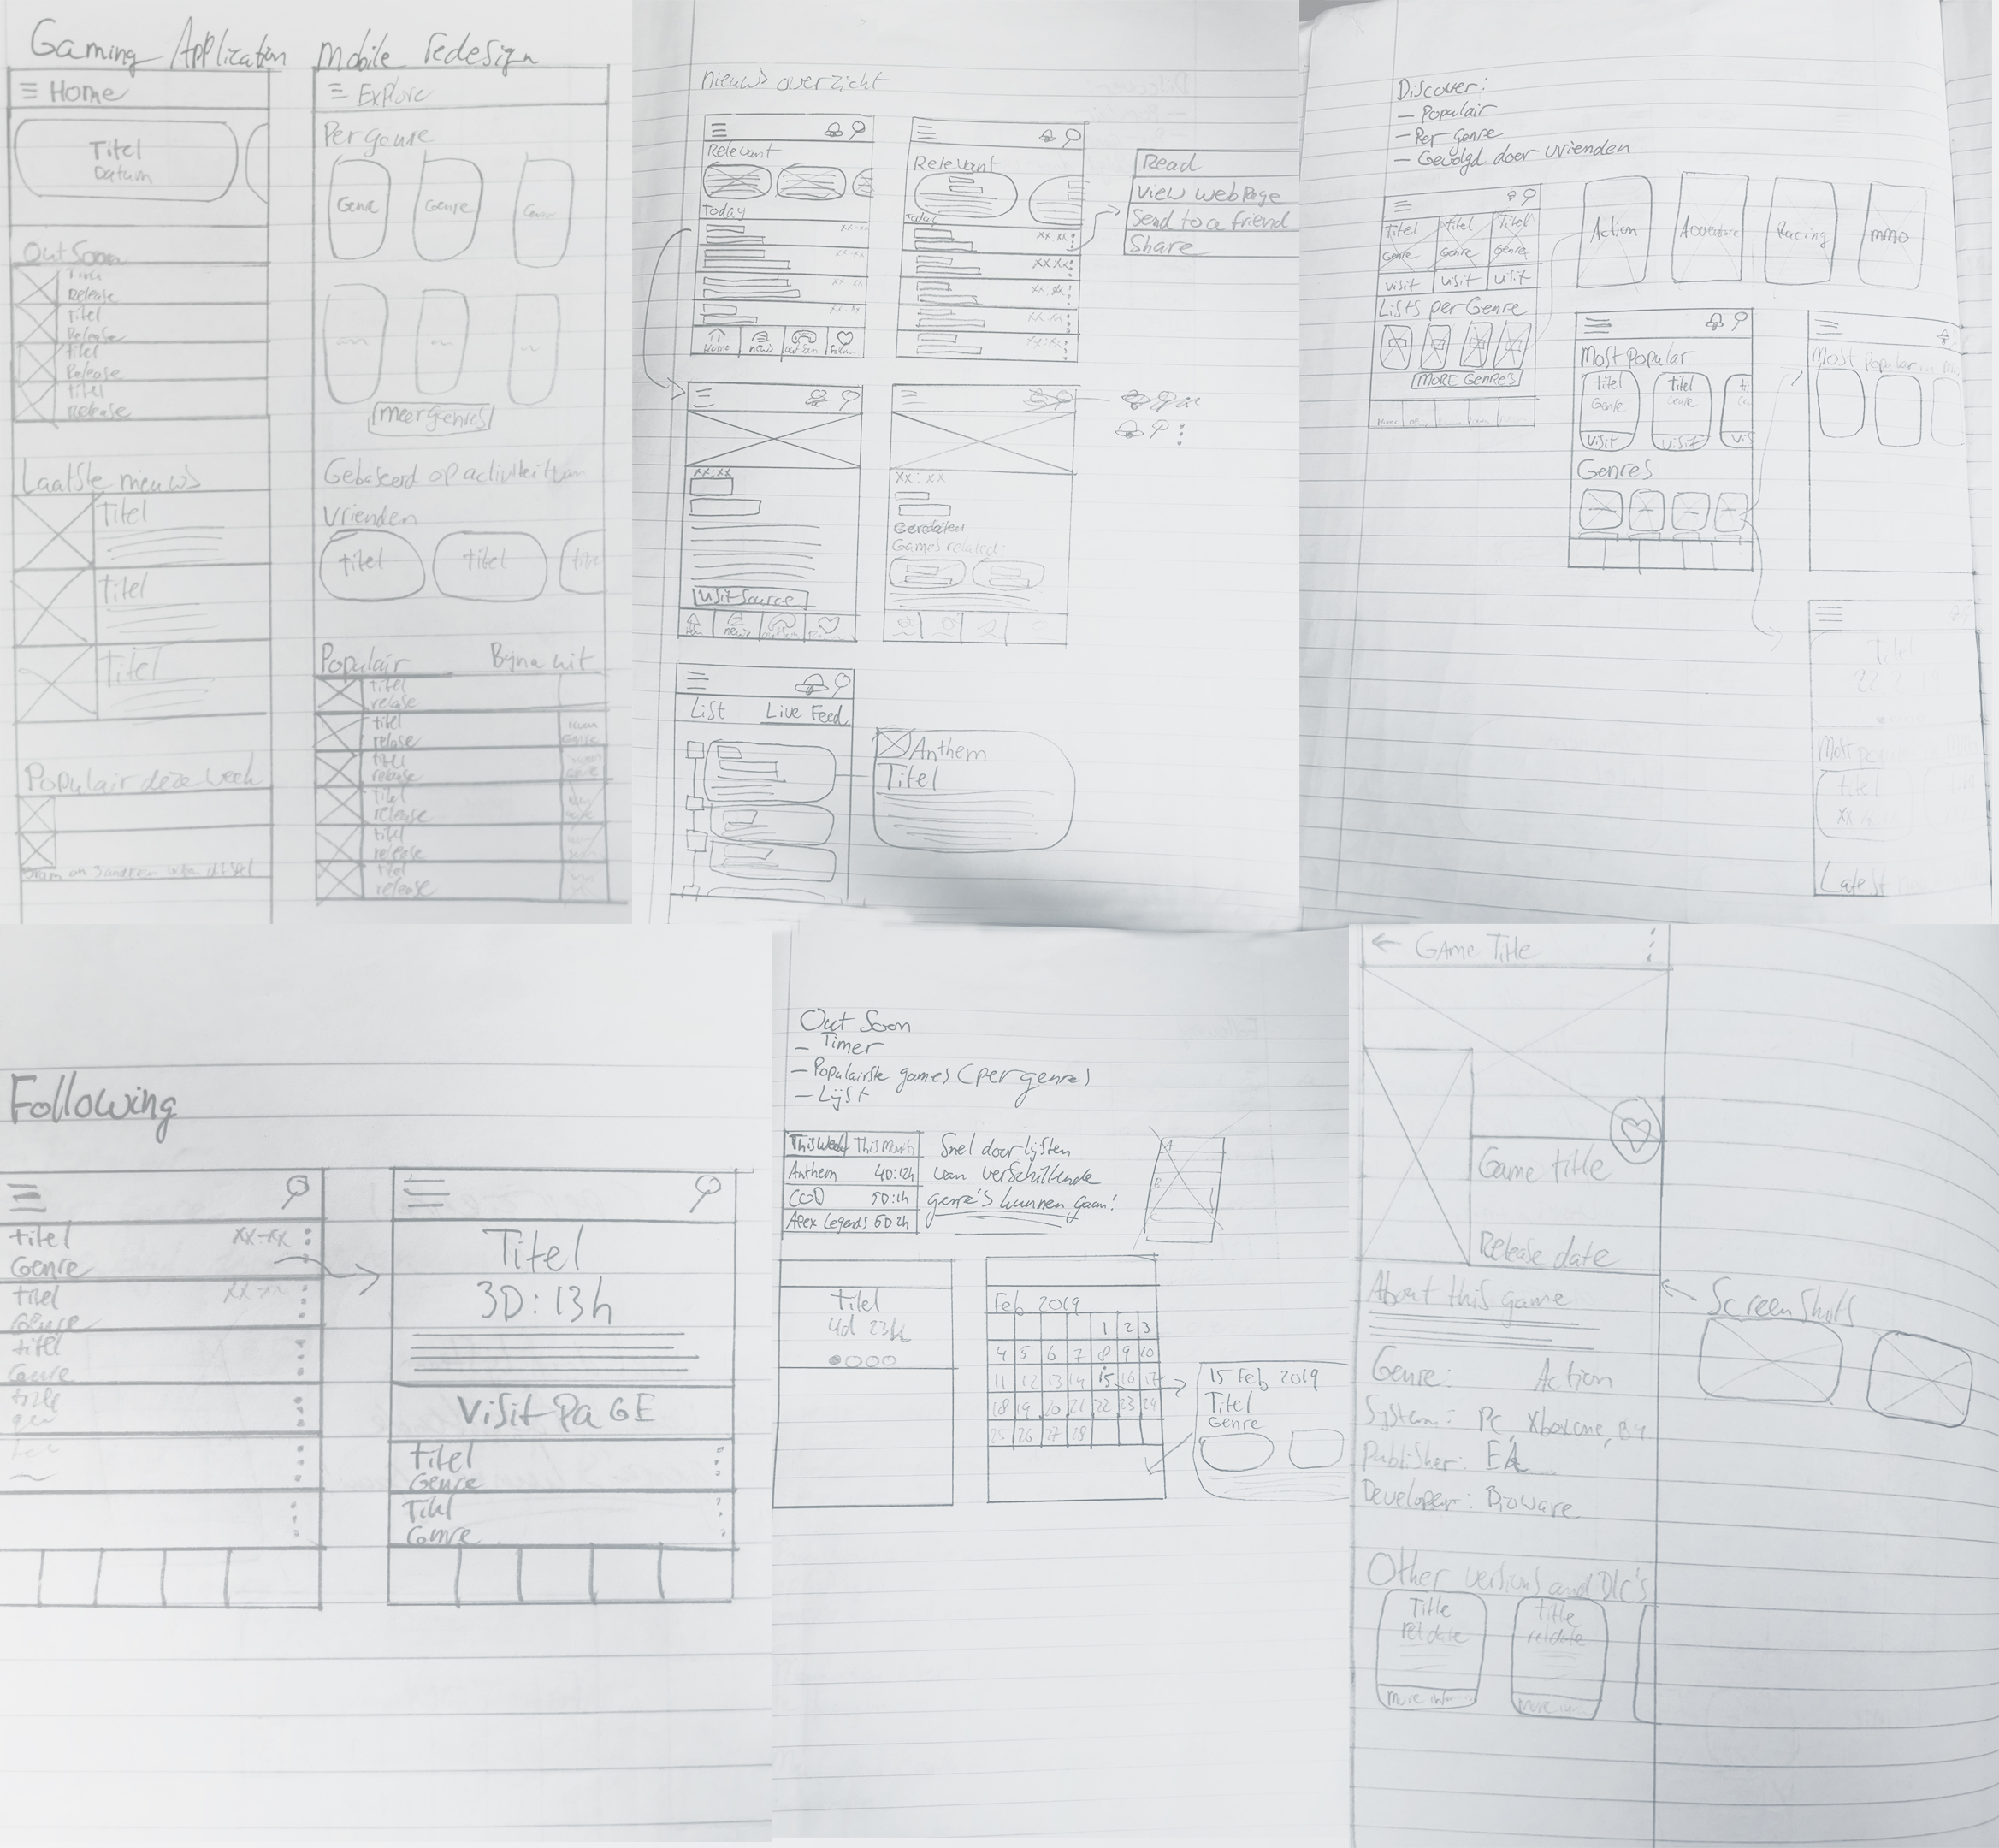 Gaming Application Mobile redesign
Home
Titel
Datum
Out Soon
Titel
Release
Titel
Release
Titel
Release
Titel
Release
Laatste nieuws
Titel
Titel
Titel
Populair deze week
Explore
Per genre
Genre
Genre
Genre
Meer genres
Gebaseerd op activiteit van
vrienden
titel
titel
titel
Populair Bijna uit
titel
release
titel
release
titel
release
titel
release
titel
release
titel
release
nieuws overzicht
Relevant
Today
xx:xx
xx:xx
xx:xx
xx:xx
Home news out soon
Relevant
Today
xx:xx
xx:xx
xx:xx
xx:xx
xx:xx
Read
View webpage
Send to a friend
Share
xx:xx
Visit Source
news
xx:xx
Games related:
List Live Feed
Anthem
Titel
Discover:
- Populair
- Per genre
- Gevolgd door vrienden
Titel Titel Titel
Genre Genre Genre
Visit Visit Visit
Lists per Genre
MORE GENRES
Action Adventure Racing MMO
Most Popular
titel titel ti
Genre Genre
Visit Visit Vis
Genres
Most Popular
Titel
Most
titel
xx
Latest
Following
titel xx-xx
Genre
titel
Genre
titel
Genre
title
Titel
3D:13h
Visit PAGE
Titel
Genre
Titel
Genre
Out Soon
- Timer
- Populairste games (per genre)
- Lijst
This Week This Month
Anthem 4D:12h
COD 5D:1h
Apex Legends 6D 2h
Snel door lijsten
van verschillende
genre's kunnen gaan!
Titel
4d 23h
Feb 2019
1 2 3
4 5 6 7 8 9 10
11 12 13 14 15 16 17
18 19 20 21 22 23 24
25 26 27 28
15 Feb 2019
Titel
Genre
← GAme Title
Game title
Release date
About this game
Screenshots
Genre: Action
System: PC, Xbox one,
Publisher: EA
Developer: Bioware
Other versions and DLC's
Title
rel date
More
Title
rel date
More